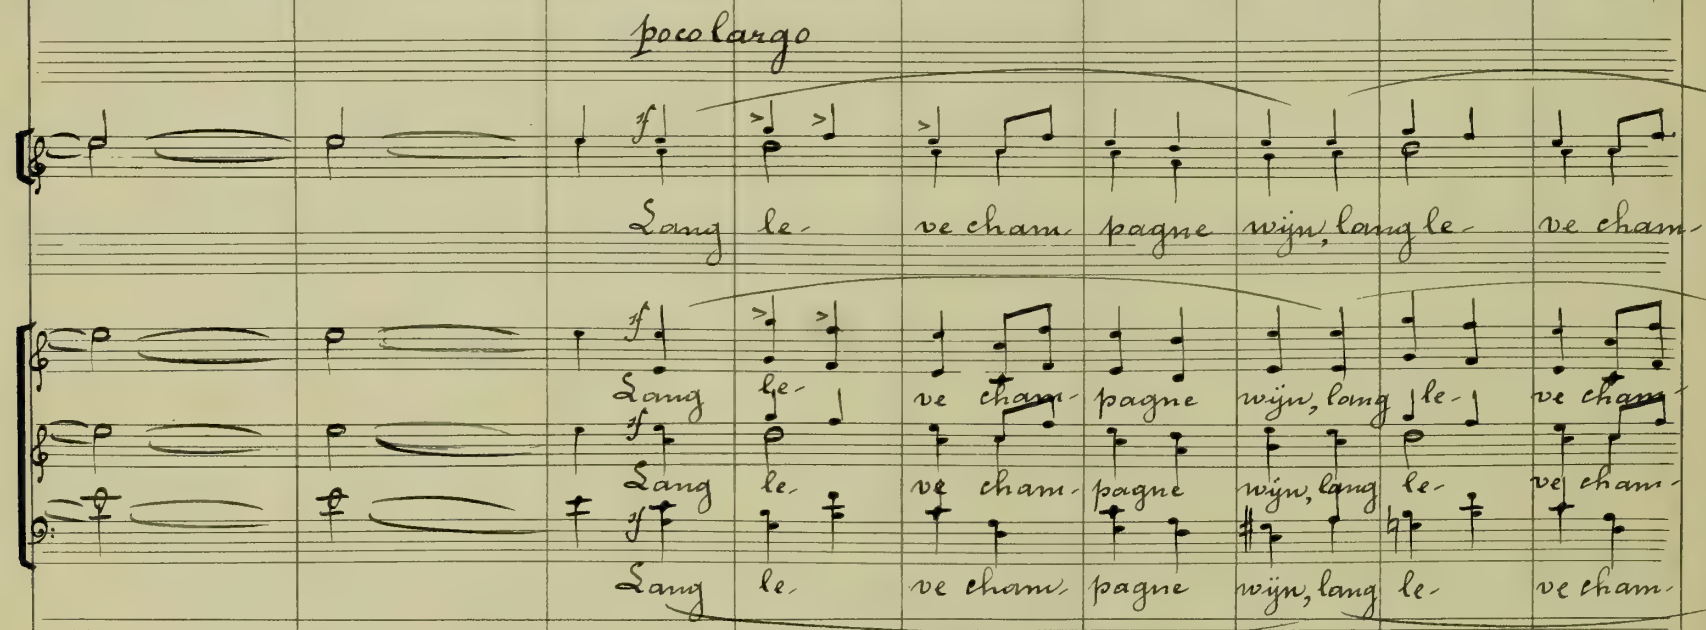 poco largo
sf
Lang le- ve cham- pagne wijn, lang le- ve cham-
sf
Lang le- ve cham- pagne wijn, lang le- ve cham-
sf
Lang le- ve cham- pagne wijn, lang le- ve cham-
sf
Lang le- ve cham- pagne wijn, lang le- ve cham-